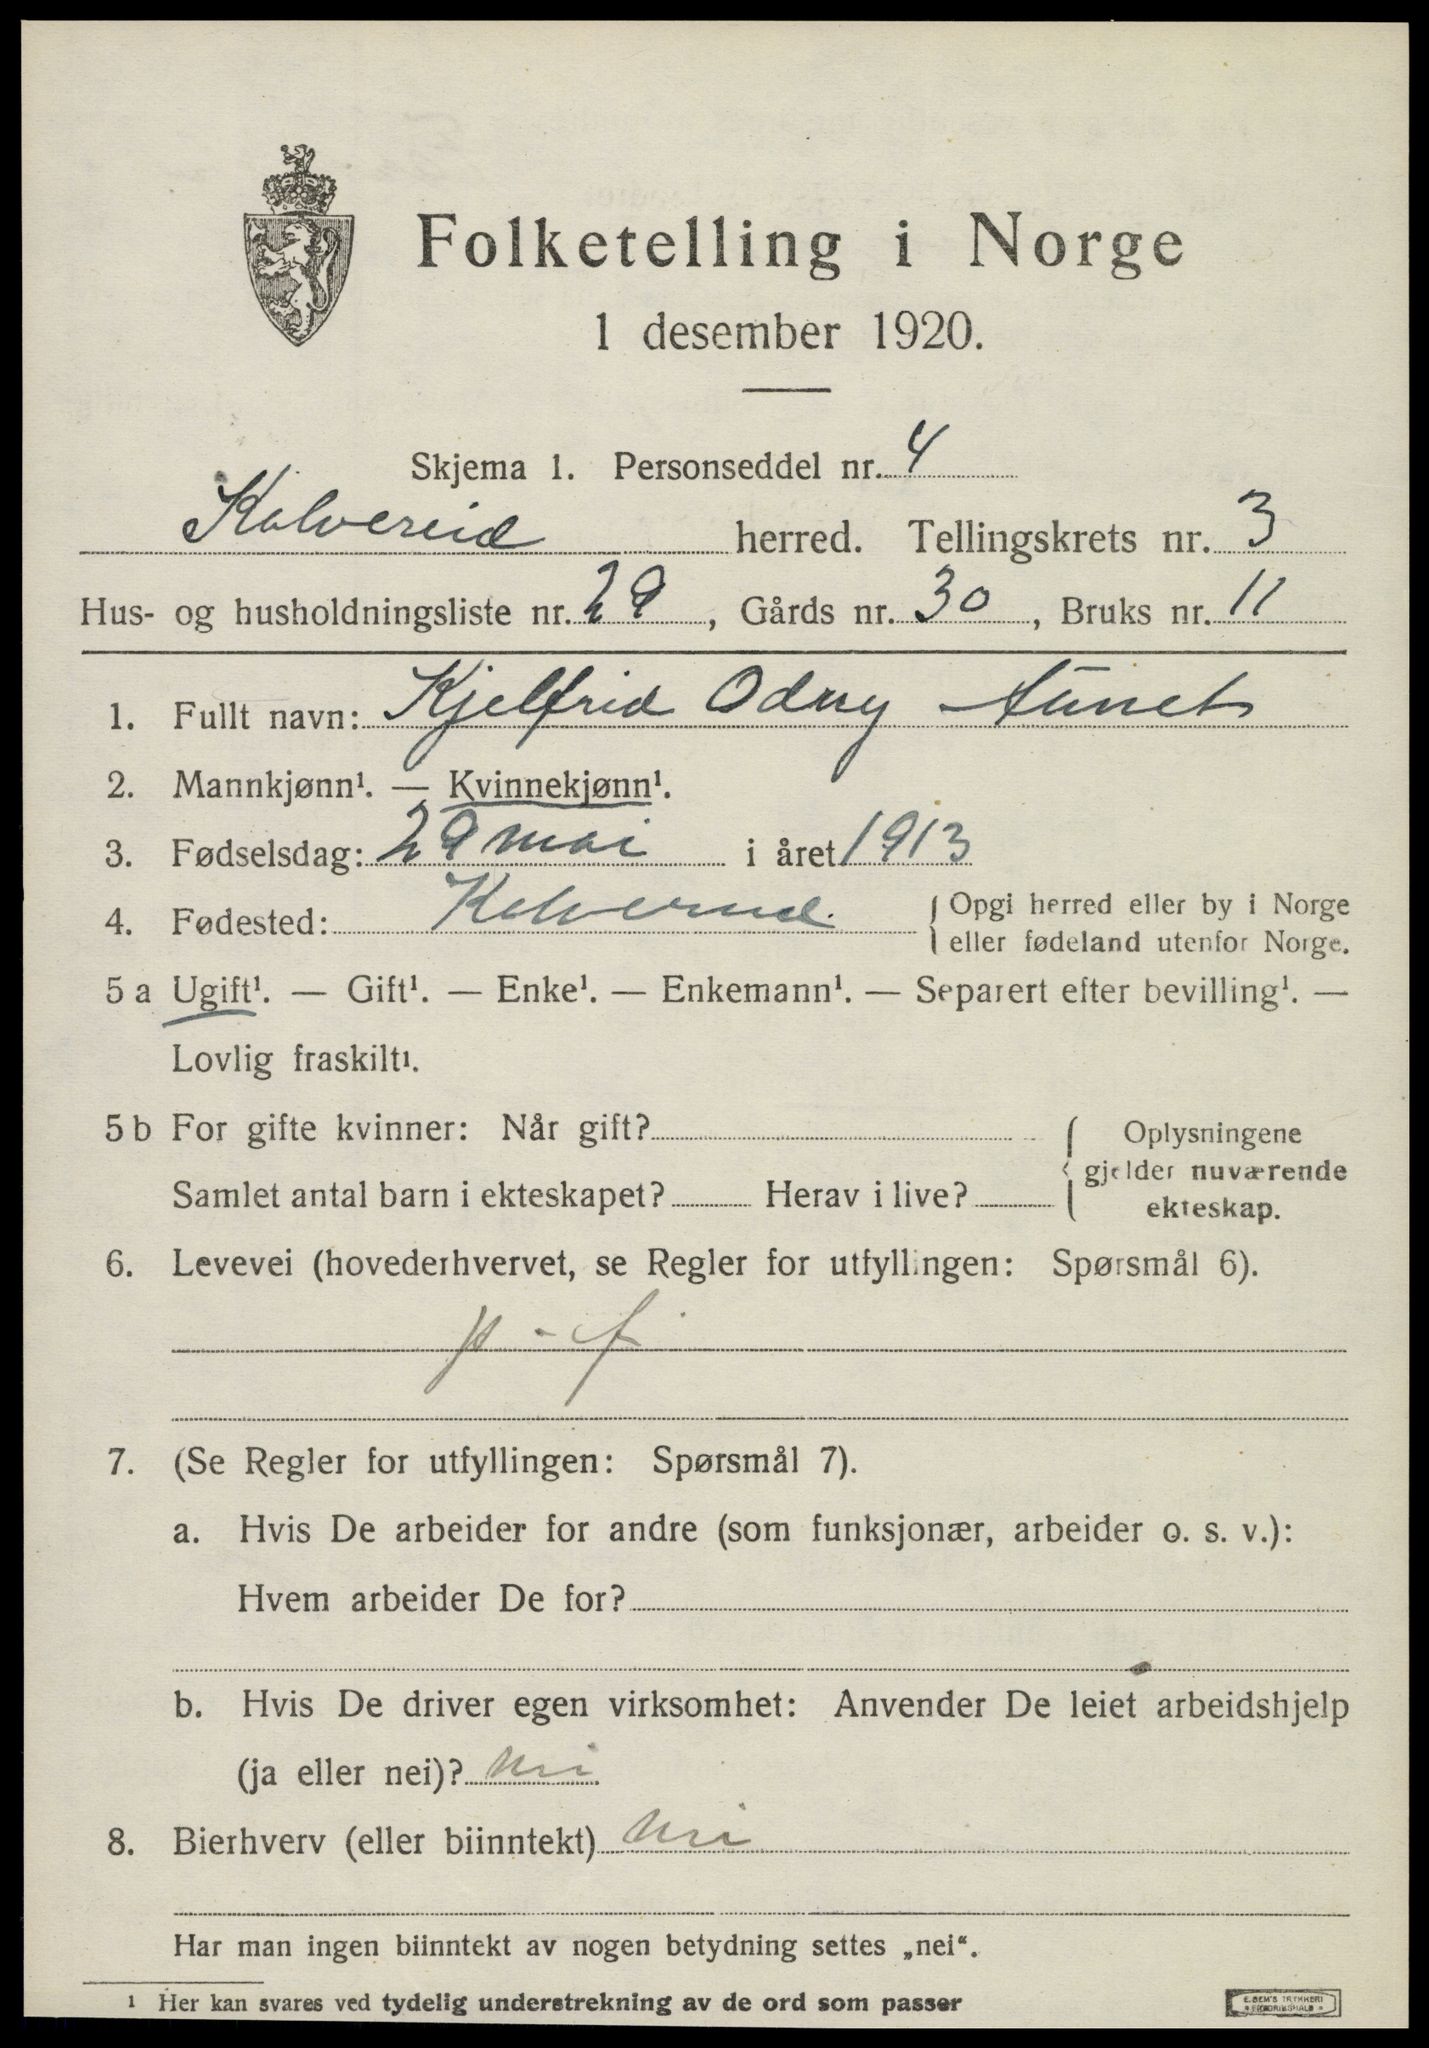 Folketelling i Norge
1 desember 1920.
Skjema 1. Personseddel nr. 4
Kolvereid herred. Tellingskrets nr. 3
Hus- og husholdningsliste nr. 29, Gårds nr. 30, Bruks nr. 11
1. Fullt navn: Kjelfrid Odny Aunet
2. Mannkjønn¹. — Kvinnekjønn¹.
3. Fødselsdag: 29 mai i året 1913
4. Fødested: Kolvereid. Opgi herred eller by i Norge
eller fødeland utenfor Norge.
5 a Ugift¹. — Gift¹. — Enke¹. — Enkemann¹. — Separert efter bevilling¹. —
Lovlig fraskilt¹.
5 b For gifte kvinner: Når gift? Oplysningene
gjelder nuværende
Samlet antal barn i ekteskapet? Herav i live?
ekteskap.
6. Levevei (hovederhvervet, se Regler for utfyllingen: Spørsmål 6).
7. (Se Regler for utfyllingen: Spørsmål 7).
a. Hvis De arbeider for andre (som funksjonær, arbeider o. s. v.):
Hvem arbeider De for?
b. Hvis De driver egen virksomhet: Anvender De leiet arbeidshjelp
(ja eller nei)? nei
8. Bierhverv (eller biinntekt) nei
Har man ingen biinntekt av nogen betydning settes „nei“.
¹ Her kan svares ved tydelig understrekning av de ord som passer
E. SEM'S TRYKKERI
FREDRIKSHALD